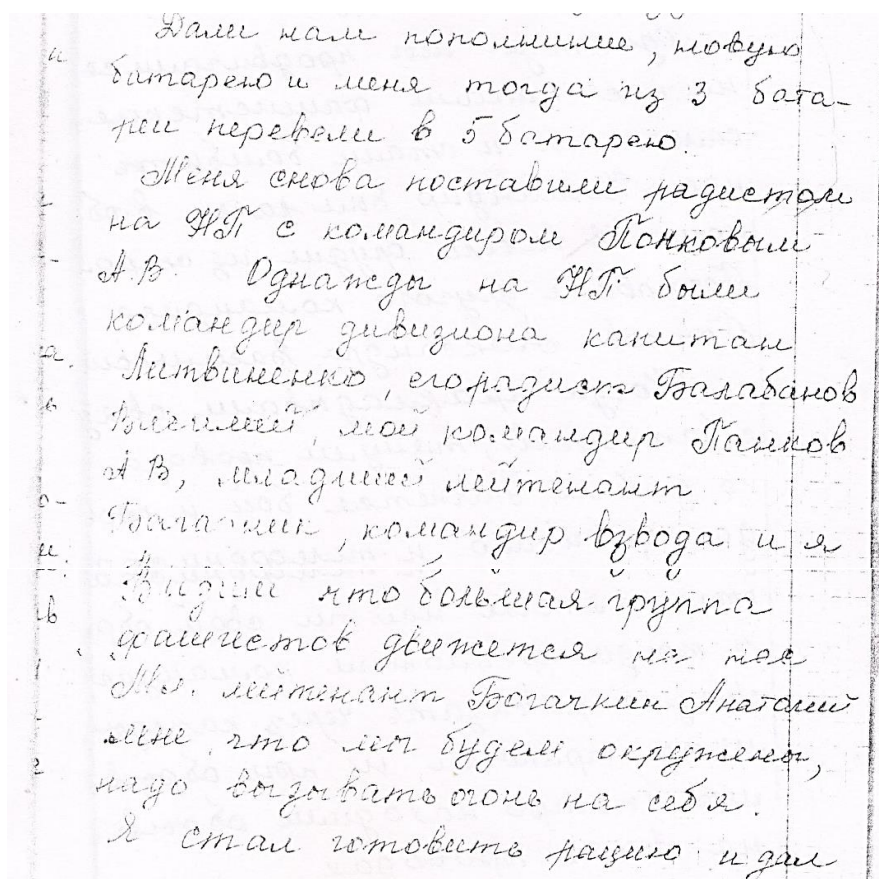 Дали нам пополнение, новую
батарею и меня тогда из 3 бата-
реи перевели в 5 батарею.
Меня снова поставили радистом
на НП с командиром Панковым
А.В. Однажды на НП были
командир дивизиона капитан
Литвиненко, его радист Балабанов
мой командир Панков
А В, младший лейтенант
командир взвода и я
Видим что большая группа
фашистов движется на нас
Мл. лейтенант Богачкин Анатолий
мне, что мы будем окружены,
надо вызывать огонь на себя.
Я стал готовить рацию и дал